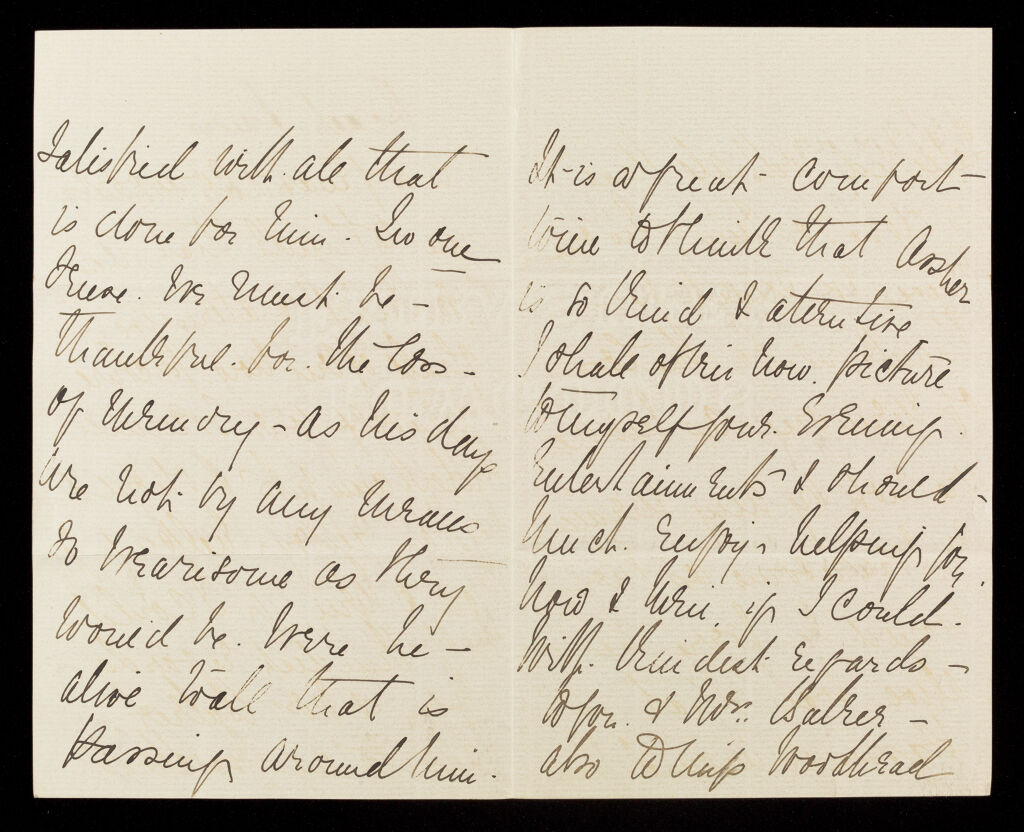 satisfied with all that
is done for him. In one
sense. we must be –
thankful. for. the loss –
of memory – as his days
are not by any means
so wearisome as they
would be. were he –
alive to all that is
passing around him.
It is a great comfort –
to me to think that
is so kind & atentive
I shall often now. picture
to myself your. Evening
Entertainments & should –
much. enjoy – helping you.
now & then, if I could.
With kindest regards –
to you. & Mrs. Baker –
also to Miss Woodhead